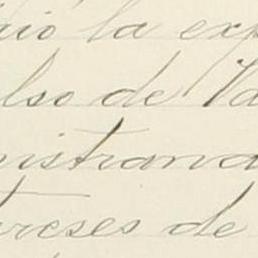 dió la exp
lso de Va
nistrand
tereses de